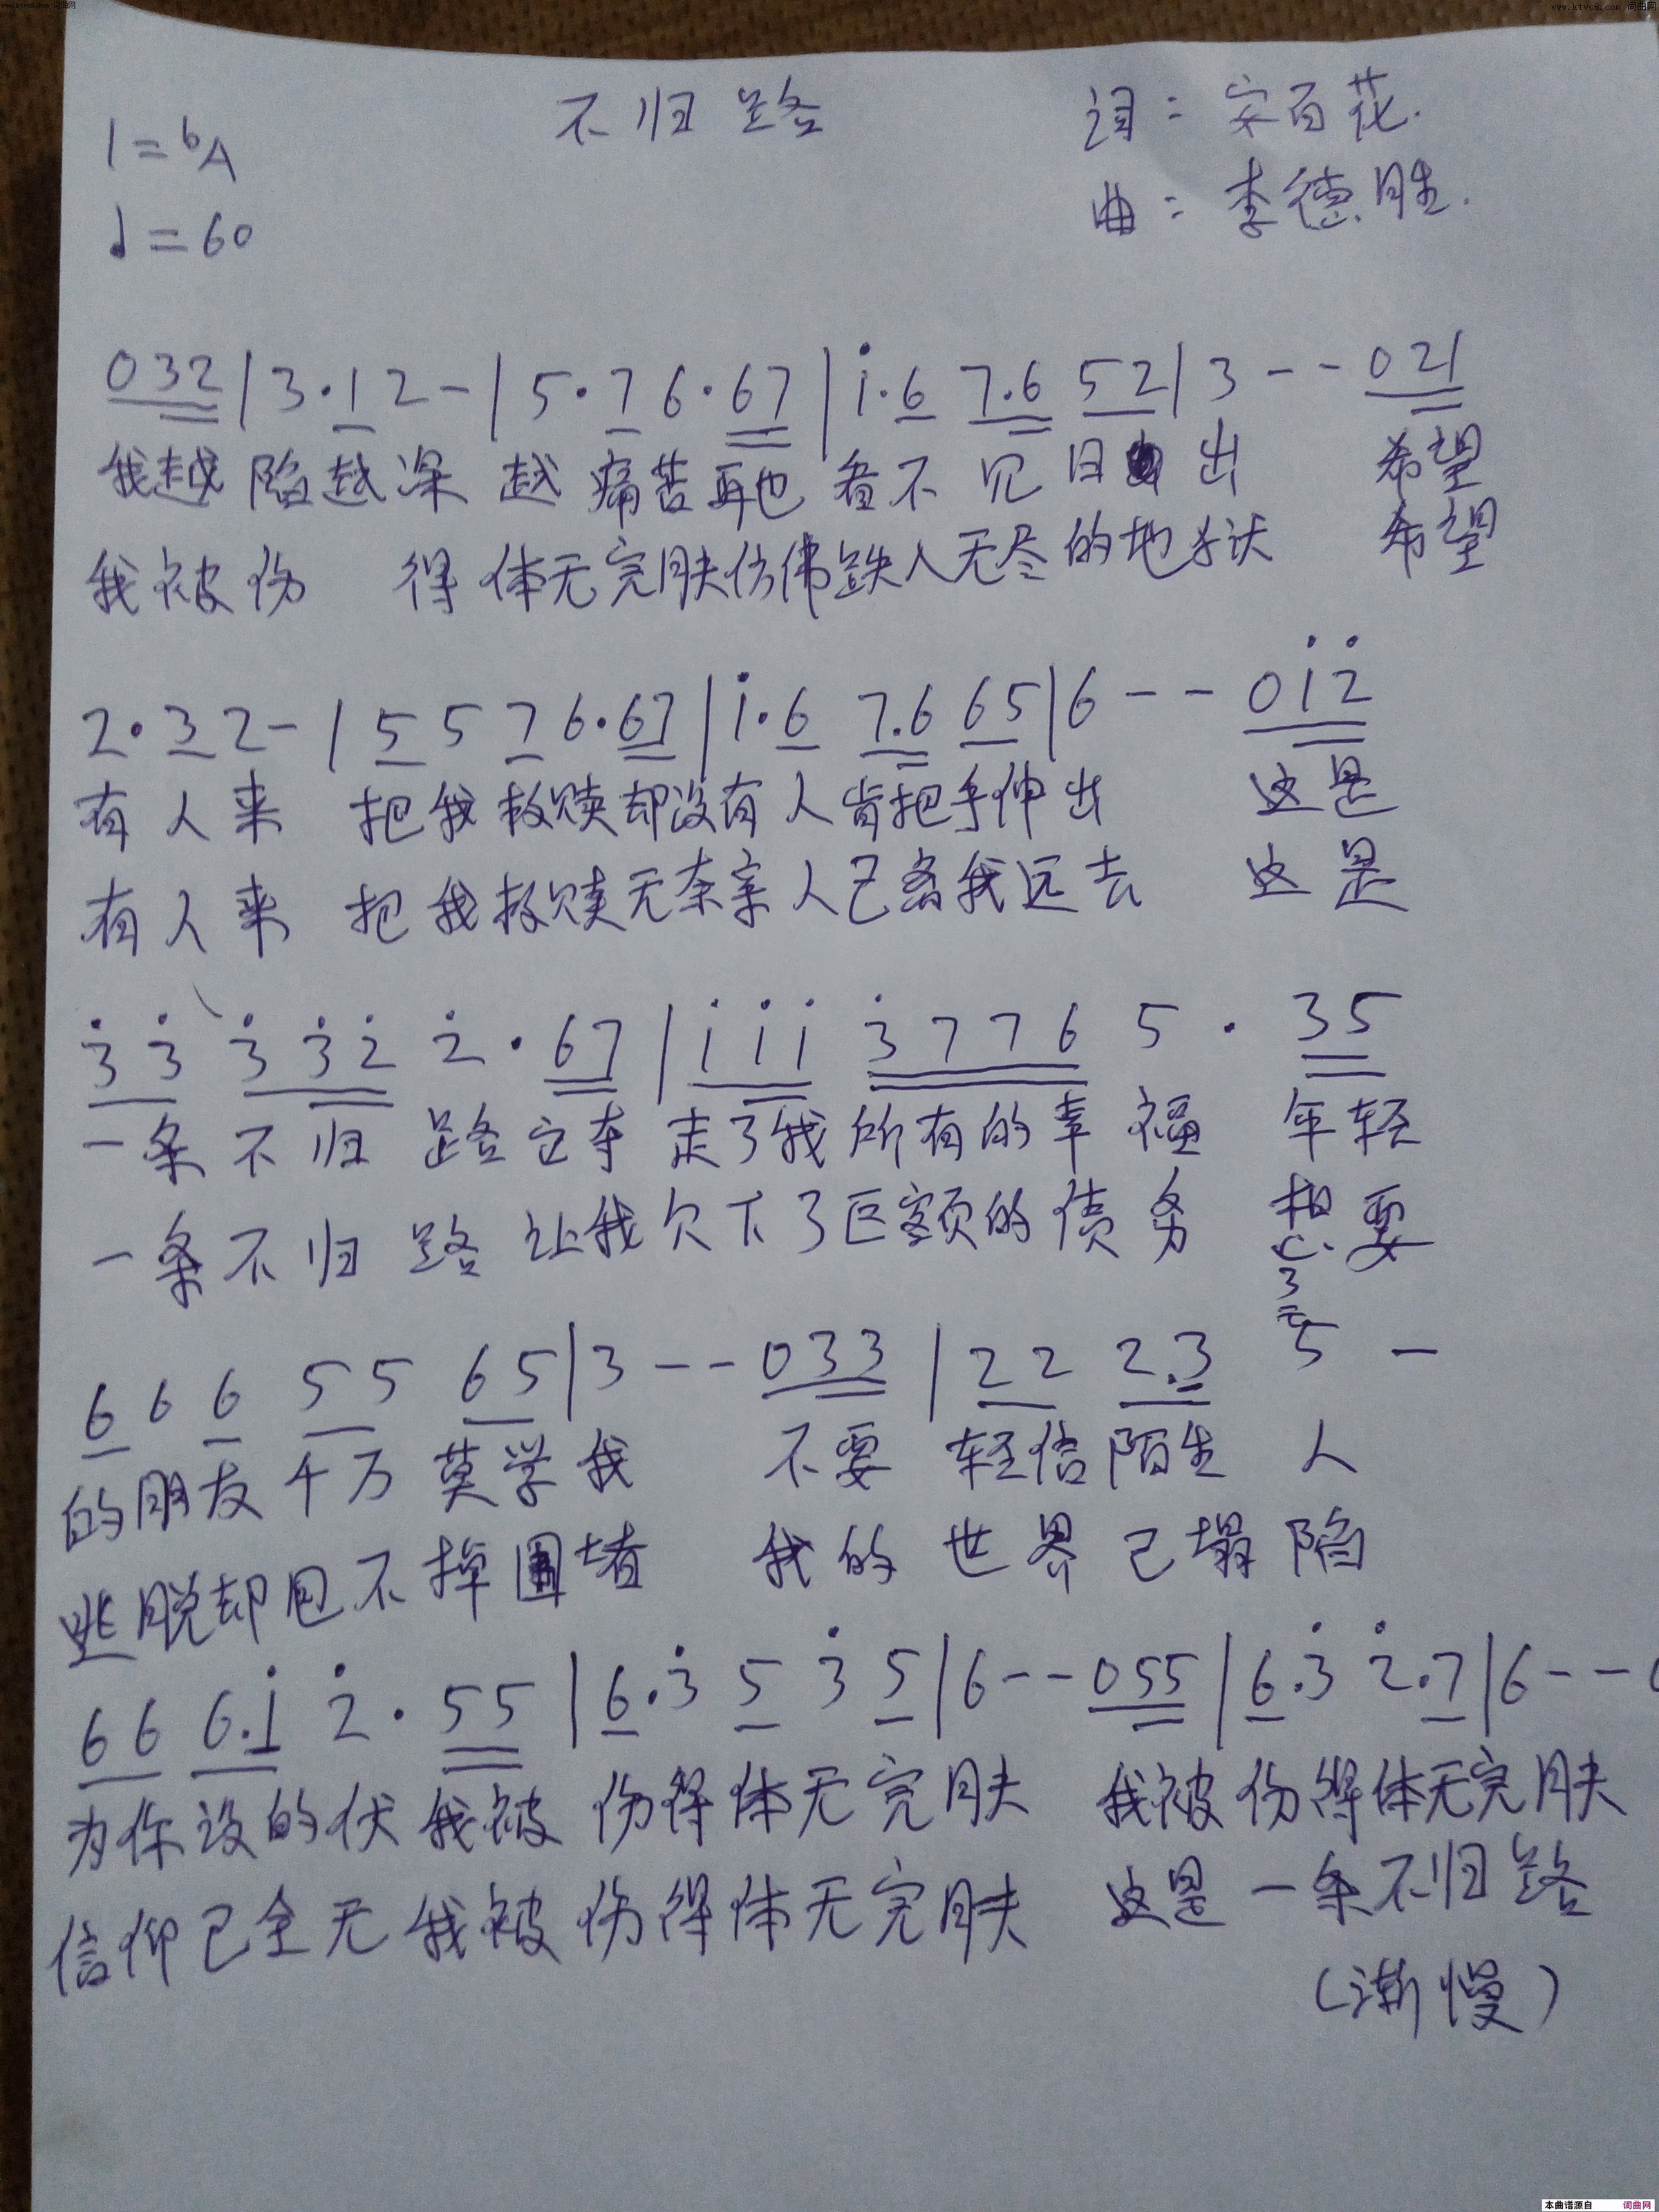 www.ktvc8.com 词曲网
www.ktvc8.com 词曲网
不归路
词：安百花.
1=bA
曲：李德胜.
♩=60
032|3·12-|5·76·67|i·6 7.6 52|3--021
我越陷越深 越痛苦再也看不见日出 希望
我被伤 得体无完肤仿佛跌入无尽的地狱 希望
2·32-|5576·67|i·6 7.6 65|6--0i2̇
有人来 把我救赎却没有人肯把手伸出 这是
有人来 把我救赎无奈亲人已离我远去 这是
3̇3̇ 3̇3̇2̇ 2̇·67|iii 3̇776 5·35
一条不归路它夺走了我所有的幸福 年轻
一条不归路让我欠下了巨额的债务 想要
666 55 65|3--033|22 2.3 5-
的朋友千万莫学我 不要轻信陌生人
逃脱却甩不掉围堵 我的世界已塌陷
66 6.i 2̇·55|6.3̇ 5 3̇ 5|6--055|6.3̇ 2̇.7|6--
为你设的伏我被伤得体无完肤 我被伤得体无完肤
信仰已全无我被伤得体无完肤 这是一条不归路
(渐慢)
本曲谱源自 词曲网